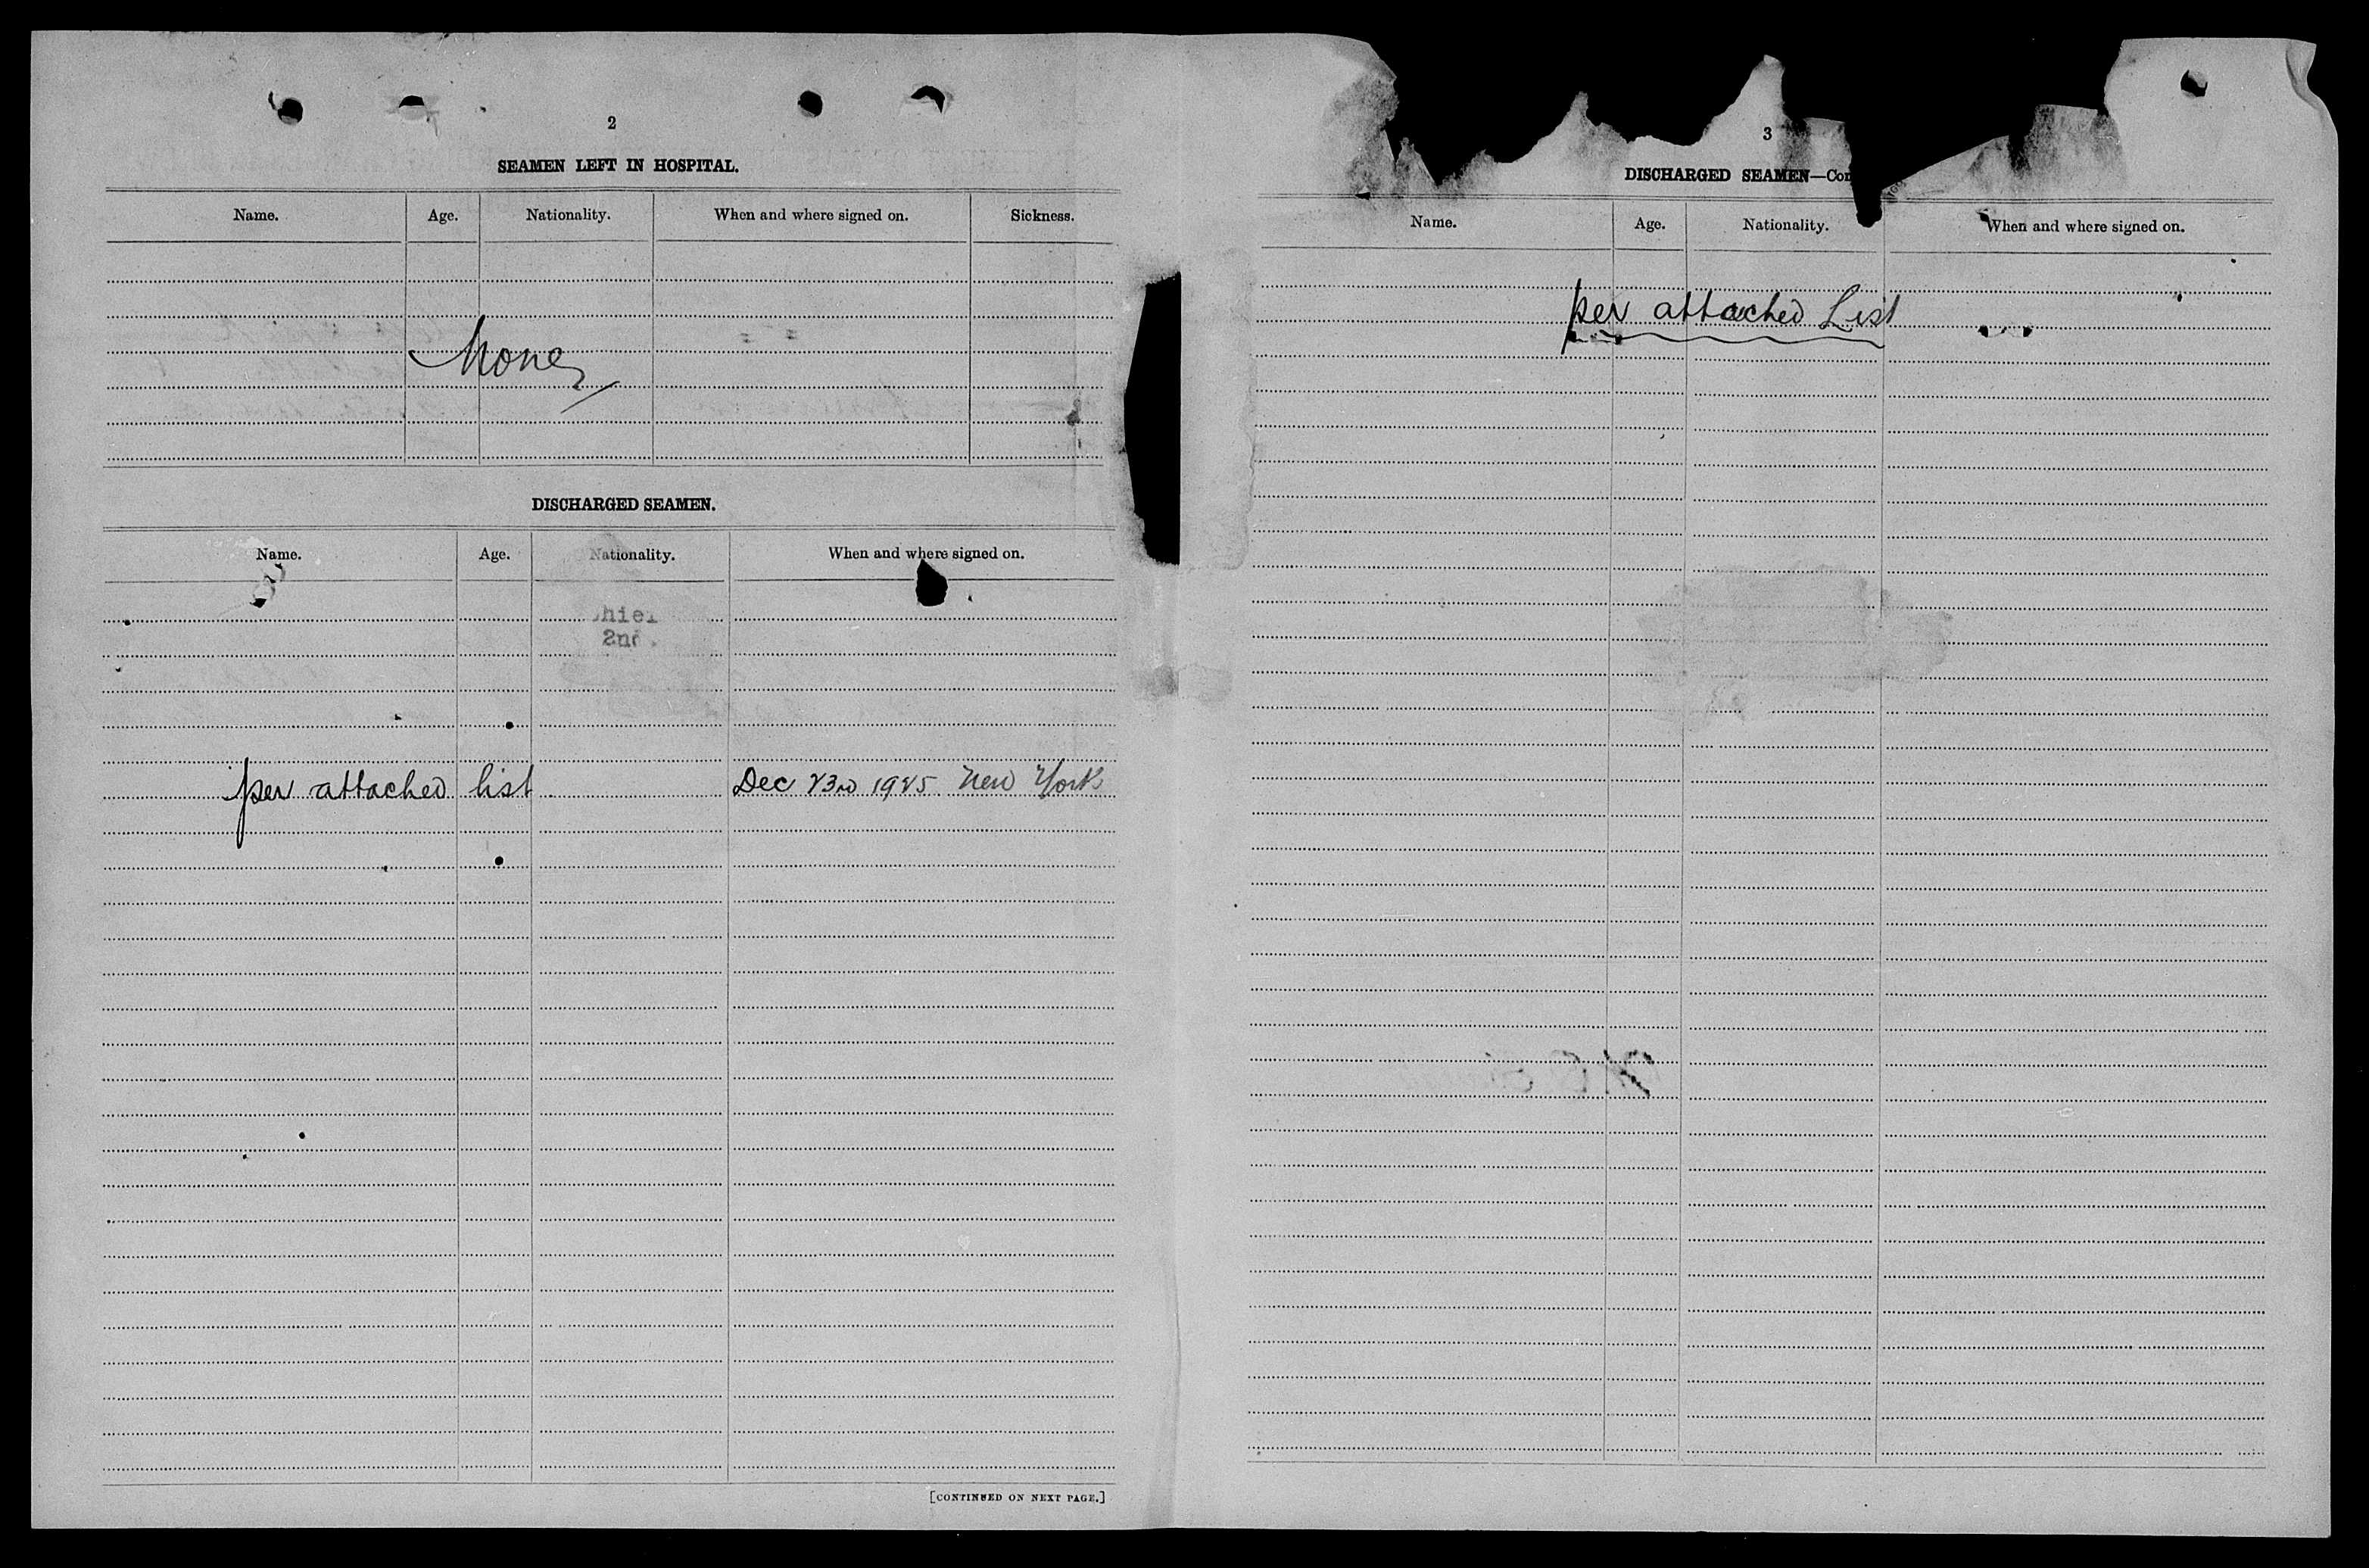 2
SEAMEN LEFT IN HOSPITAL.
Name. Age. Nationality. When and where signed on. Sickness.
None
DISCHARGED SEAMEN.
Name. Age. Nationality. When and where signed on.
2nd.
per attached list Dec 23RD 1925 New York
[CONTINUED ON NEXT PAGE.]
3
DISCHARGED SEAMEN—Con
Name. Age. Nationality. When and where signed on.
per attached List